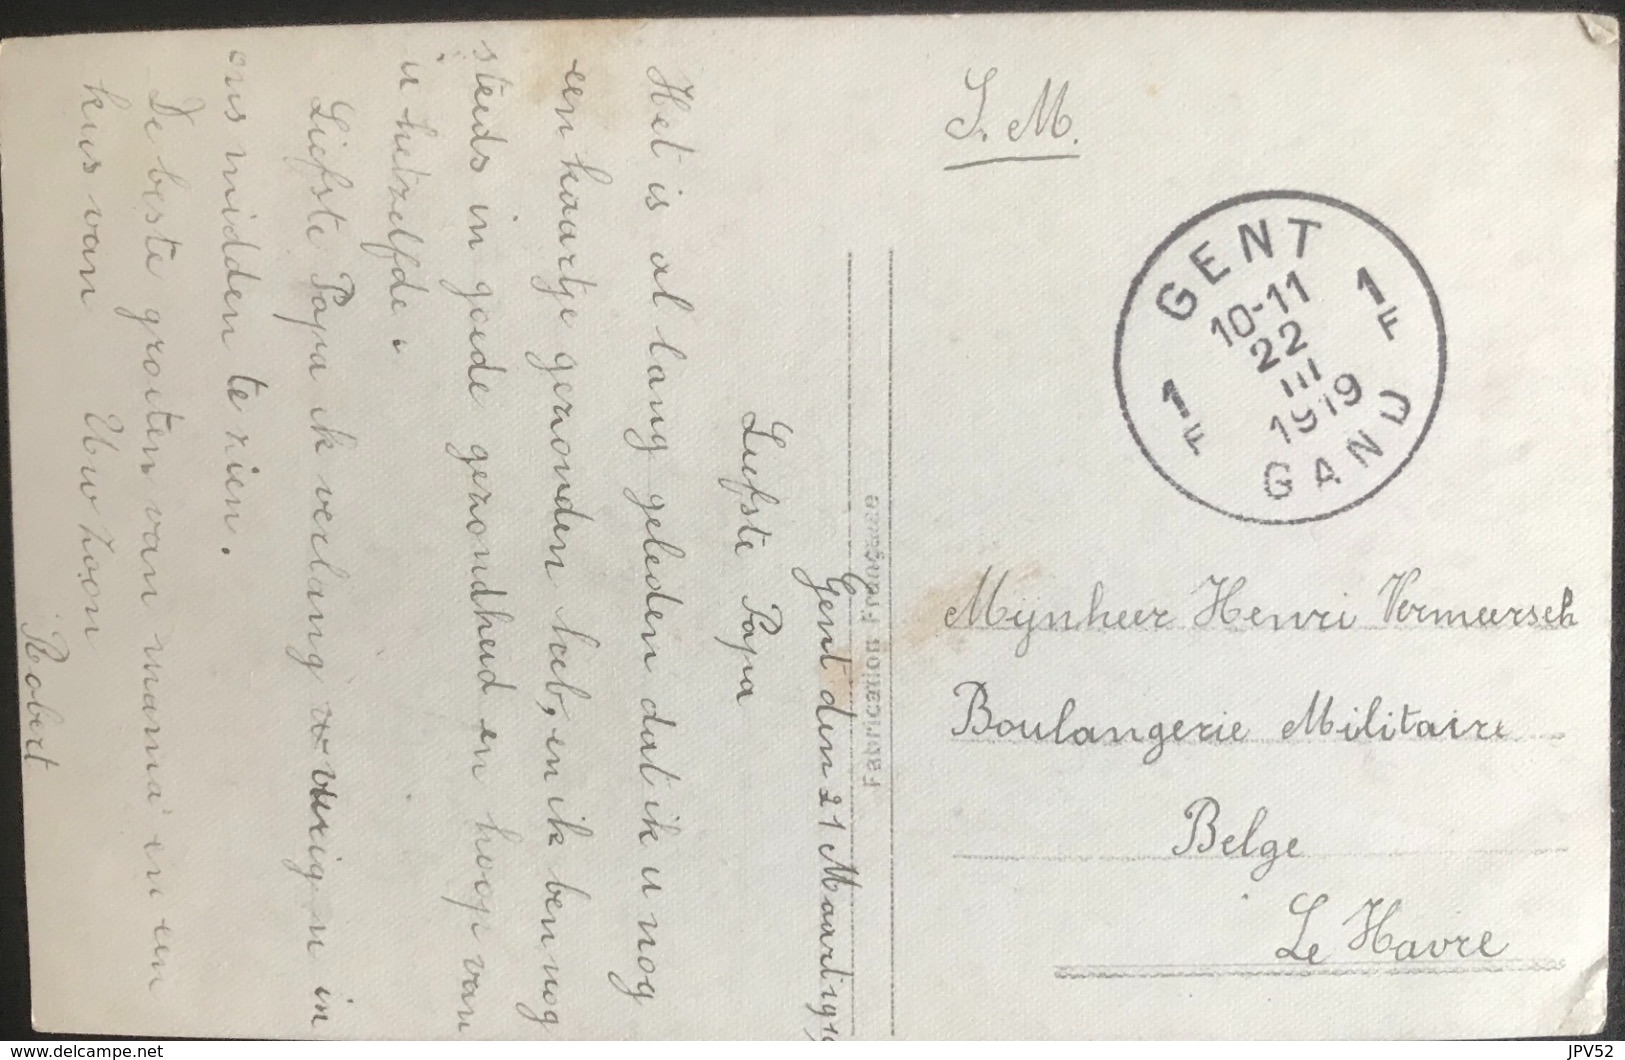 Gent den 21 Maart 1919
Liefste Papa
Het is al lang geleden dat ik u nog
een kaartje gezonden heb, en ik ben nog
steeds in goede gezondheid en hoop van
u hetzelfde.
Liefste Papa ik verlang u weerigen in
ons midden te zien.
De beste groeten van mama en een
kus van Uw zoon
Robert
Fabrication Française
S. M.
GENT
1 F
10-11
22
III
1919
1 F
GAND
Mynheer Henri Vermeersch
Boulangerie Militaire
Belge
Le Havre
www.delcampe.net
JPV52